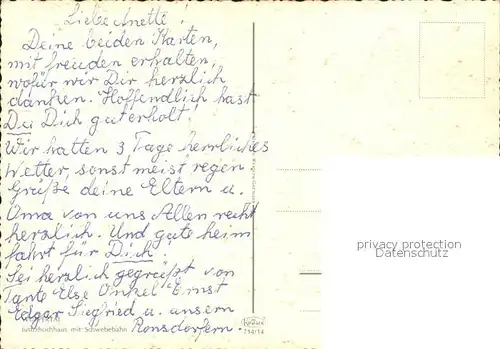 Liebe Anette!
Deine beiden Karten,
mit freuden erhalten,
wofür wir Dir herzlich
danken. Hoffendlich hast
Du Dich gut erholt!
Wir hatten 3 Tage herrliches
Wetter, sonst meist regen
Grüße deine Eltern u.
Oma von uns Allen recht
herzlich. Und gute heim
fahrt für Dich.
Sei herzlich gegrüßt von
Tante Else Onkel Ernst
Edgar Siegfried u. unsern
Ronsdorfern.
Justizhochhaus mit Schwebebahn
Krüger
714/14
privacy protection
Datenschutz